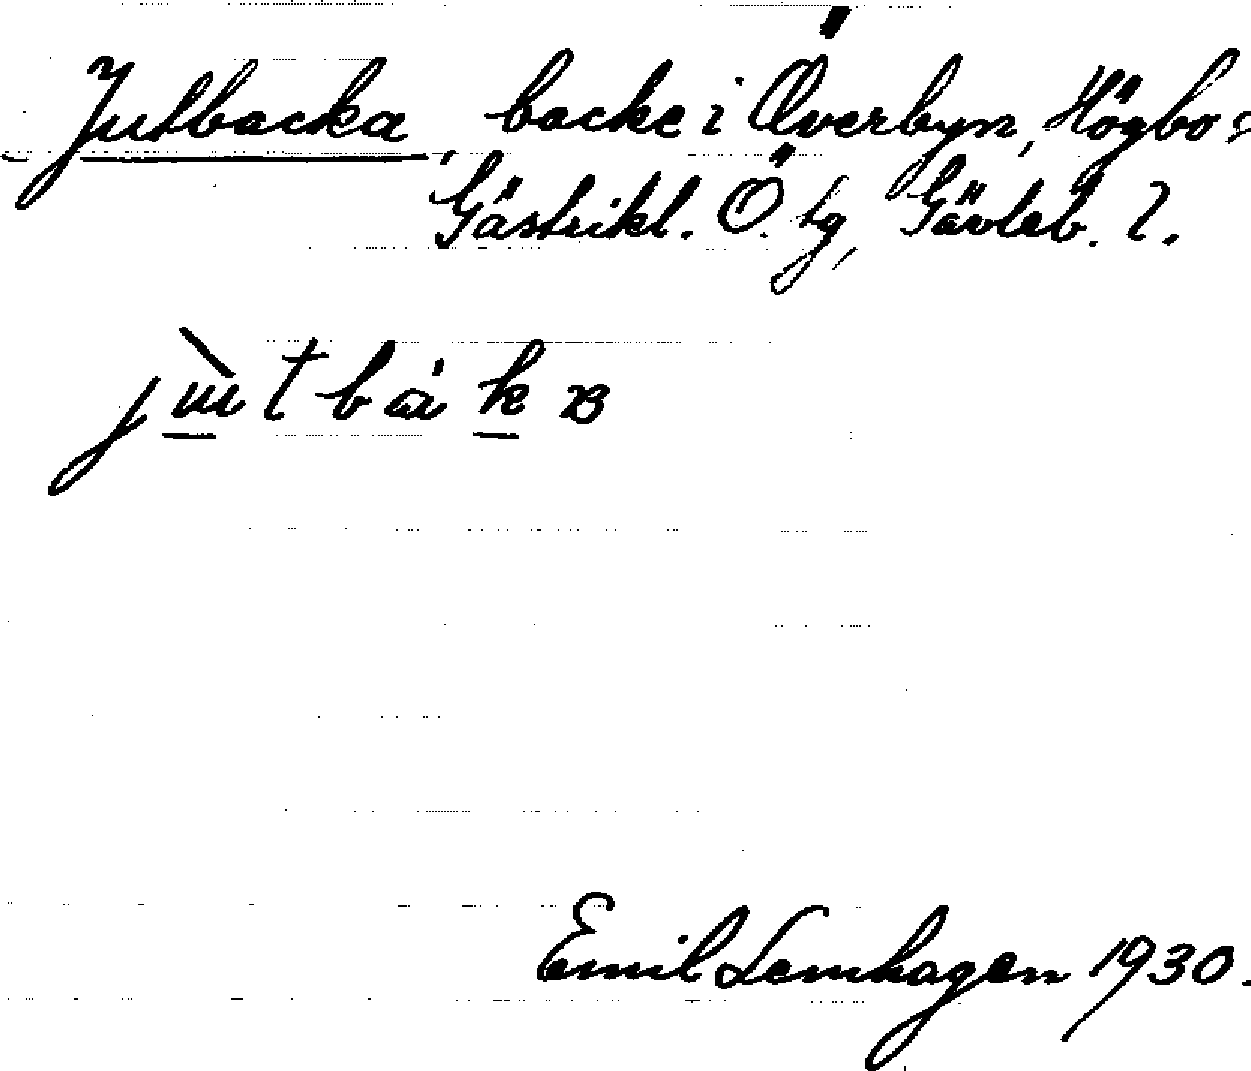 Jutbacka backe i Överbyn, Högbo s
Gästrikl. Ö. tg, Gävleb. l.
jùtbák
Emil Lemhagen 1930.